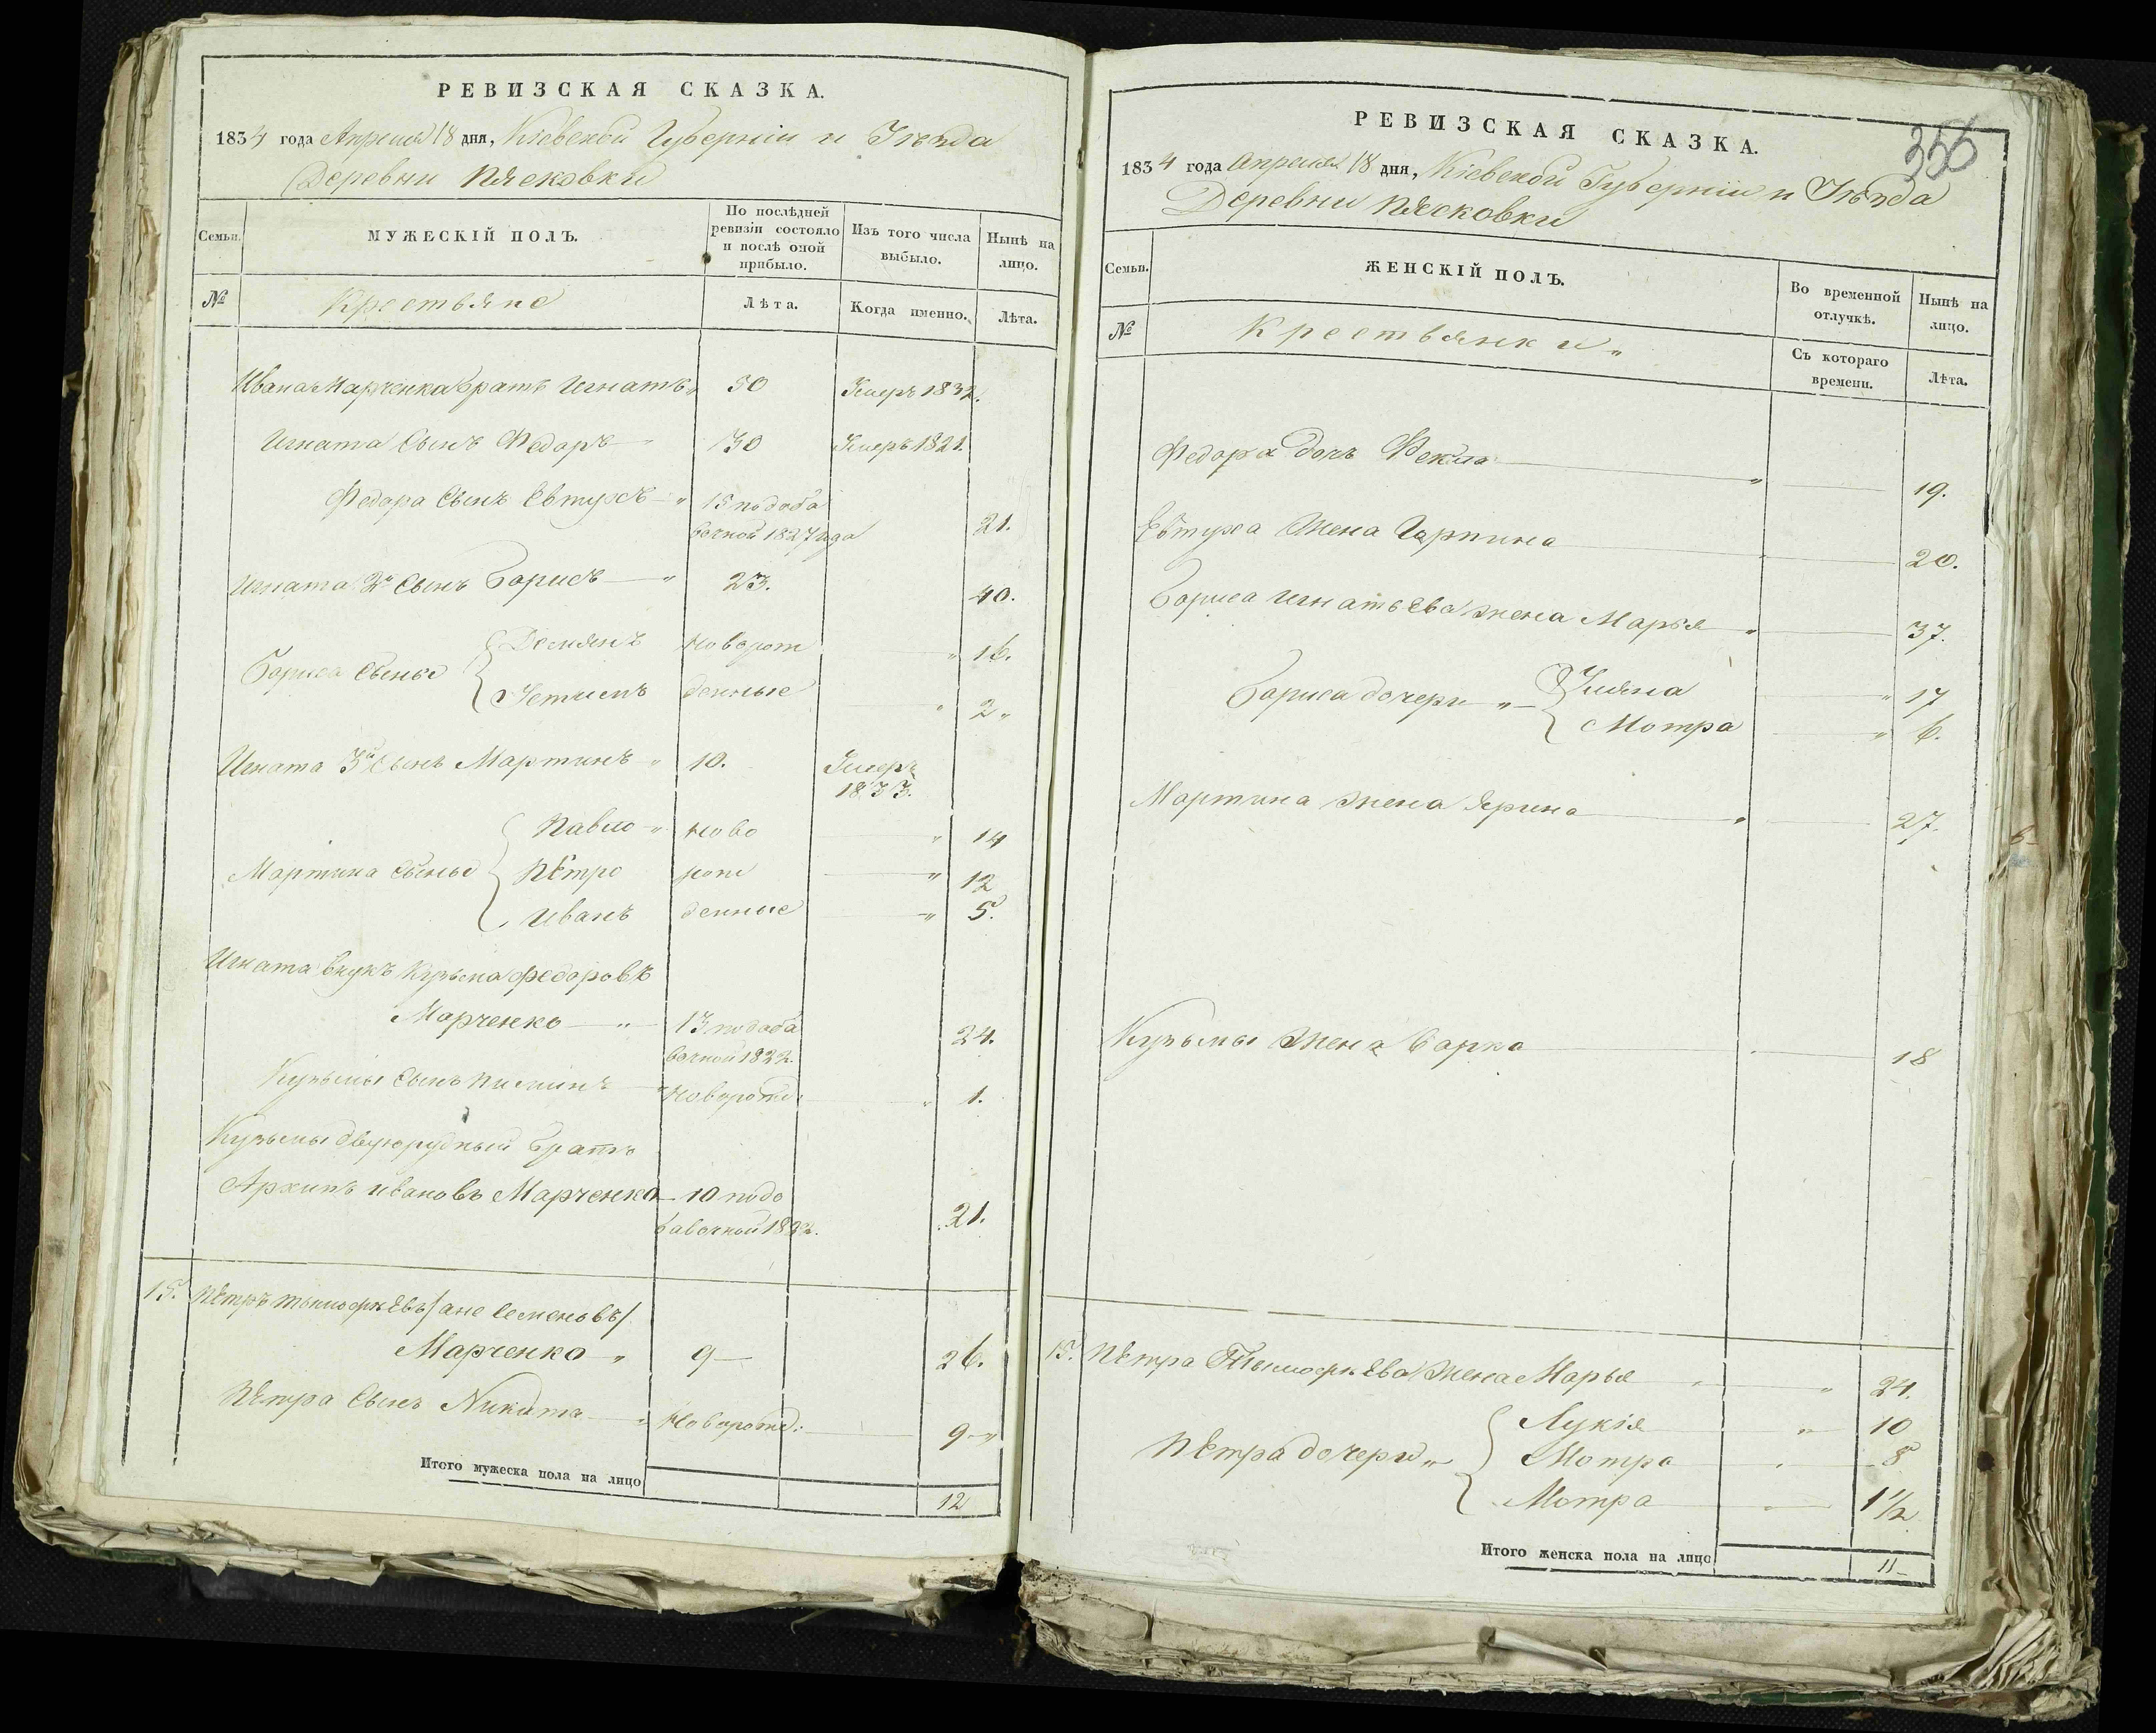 РЕВИЗСКАЯ СКАЗКА.
1834 года Апреля 18 дня, Кіевской Губерніи и Уѣзда
Деревни Пясковки
Семьи.
МУЖЕСКІЙ ПОЛЪ.
По послѣдней ревизіи состояло и послѣ оной прибыло.
Изъ того числа выбыло.
Нынѣ на лицо.
№
Крестьяне
Лѣта.
Когда именно.
Лѣта.
Ивана Марченка братъ Игнатъ 50 Умеръ 1832.
Игната Сынъ Федоръ 30 Умеръ 1821.
Федора Сынъ Евтухъ 15 по доба
вочной 1827 года 21.
Игната 2й Сынъ Борисъ 23. 40.
Бориса Сынье
Демянъ Новорож 16.
Устимъ денные 2
Игната 3й Сынъ Мартинъ 10. Умеръ
1833.
Павло Ново 14
Мартина Сынье Пётро рож 12
Иванъ денные 5.
Игната внукъ Кузьма Федоровъ
Марченко 13 по доба 24.
вочной 1822.
Кузьмы Сынъ Пиминъ Новорожд: 1.
Кузьмы двуюрудный братъ
Архипъ Ивановъ Марченко 10 по до
бавочной 1822. 21.
15. Петръ Тымофѣевъ /ане Семеновъ/
Марченко 9 26.
Пётра Сынъ Никита Новорожд: 9
Итого мужеска пола на лицо
12
356
РЕВИЗСКАЯ СКАЗКА.
1834 года Апреля 18 дня, Кіевской Губерніи и Уѣзда
Деревни Пясковки
Семьи.
ЖЕНСКІЙ ПОЛЪ.
Во временной отлучкѣ.
Нынѣ на лицо.
№
Крестьянки
Съ котораго времени.
Лѣта.
Федора дочъ Фекла 19.
Евтуха Жена Гарпина 20.
Бориса Игнатьева жена Марья 37.
Бориса дочери Улияна 17
Мотра 6.
Мартина жена Ярина 27.
Кузьмы Жена Варка 18
15. Пётра Тымофѣева Жена Марья 24.
Лукія 10
Пётра дочери Мотра 8
Мотра 1 1/2
Итого женска пола на лицо
11